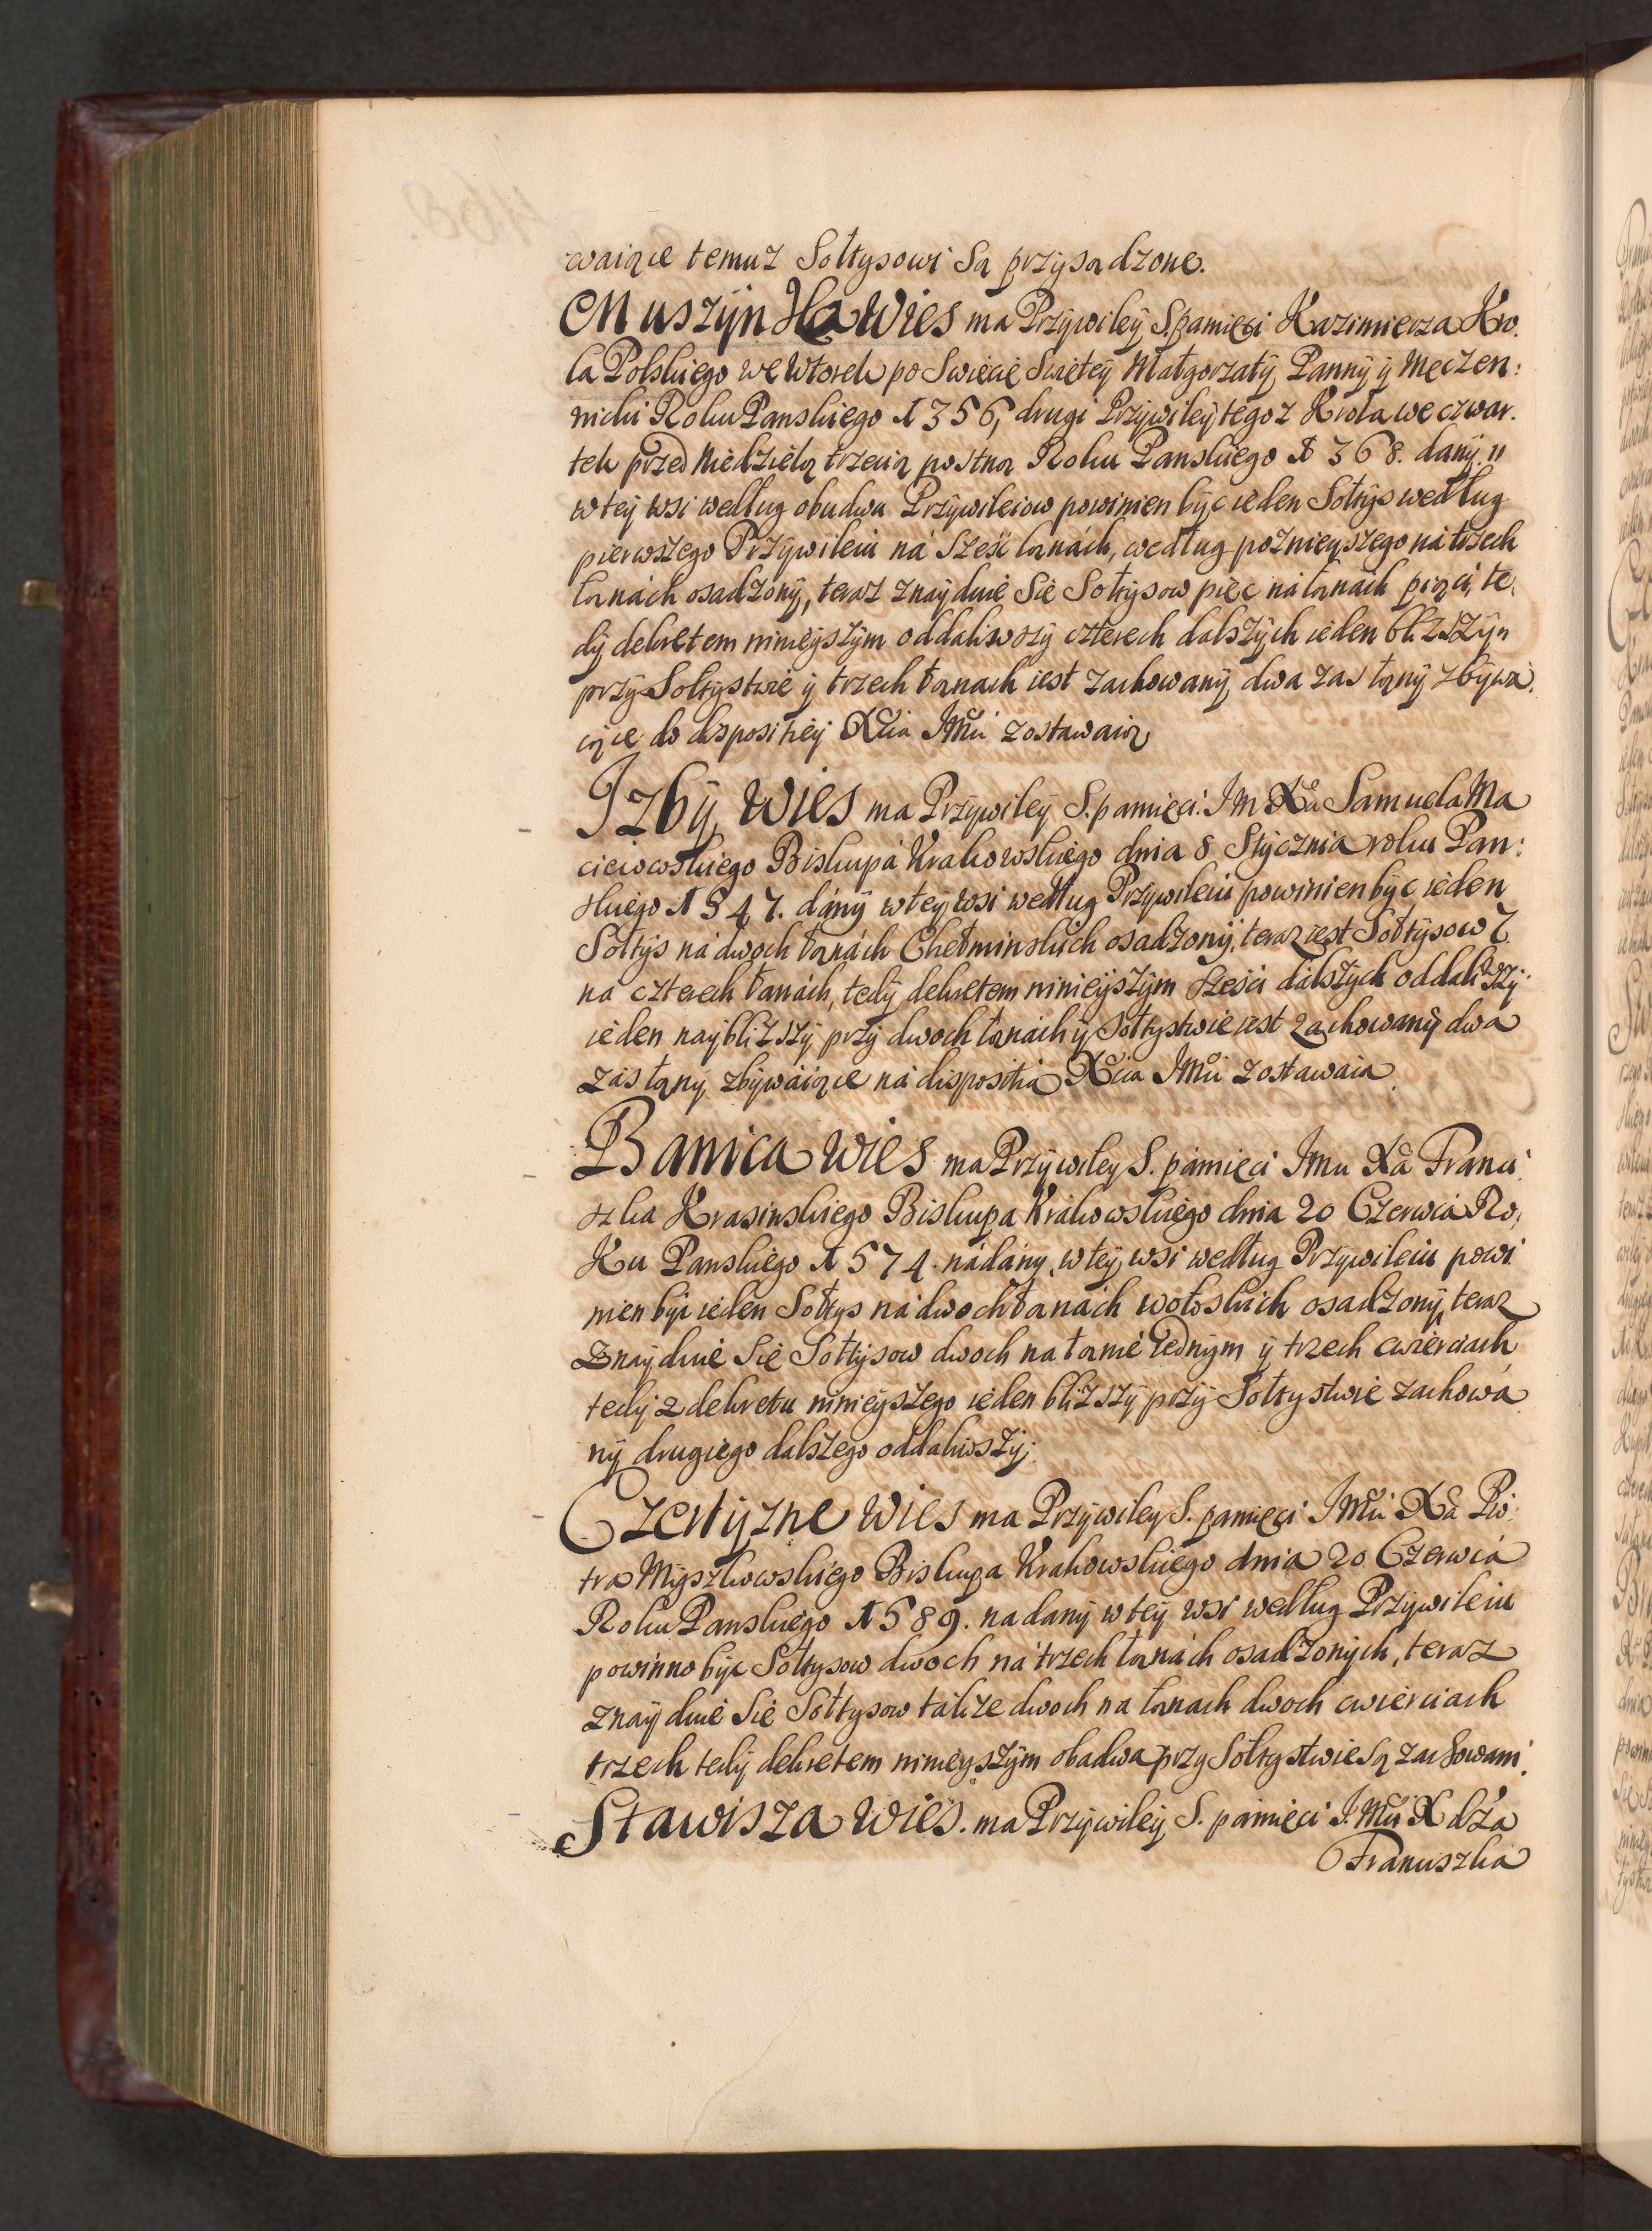 waiące temuz Sołtysowi Są przysądzone.
Muszynka Wies ma Przywiley S. pamięci Kazimierza Kro.
la Polskiego we wtorek po Swięcie Swiętey Małgorzaty Panny y Męczen:
nicki Roku Panskiego 1356, drugi Przywiley tegoz Krola we czwar.
tek przed Niedzielą trzecią postną Roku Panskiego 1368. dany. //
w tey wsi według obudwu Przywileiow powinien byc ieden Sołtys według
pierwszego Przywileiu ná Sześc łanách, według poznieyszego ná trzech
łanách osadzony, teraz znayduie Się Sołtysow pięc ná łanach pięci, te.
dy dekretem ninieyszym oddaliwszy czterech dalszych ieden blizszy
przy Sołtystwie y trzech łanach iest zachowany, dwa zas łany zbywa.
iące do dispositiey Xcia JMci zostawaią
Jzby Wies ma Przywiley S. pamięci. Jm Xa Samuela Ma
cieiowskiego Biskupá Krakowskiego dnia 8 Stycznia roku Pan:
skiego 1547. dány w tey wsi według Przywileiu powinien byc ieden
Sołtys ná dwoch łanách Chełminskich osadzony, teraz iest Sołtysow 7
na czterech łanách, tedy dekretem ninieyszym sześci dálszych oddaliwszy
ieden naybliższy przy dwoch łanách y Sołtystwie iest zachowany dwa
zás łany zbywáiące ná dispositią Xcia JMci zostawaia
Banica Wies ma Przywiley S. pámięci Jmci Xa Franci
szka Krasinskiego Biskupa Krákowskiego dnia 20 Czerwca Ro,
Ku Panskiego 1574. nádány, w tey wsi według Przywileiu powi
nien byc ieden Sołtys ná dwoch łanách wołoskich osadzony, teraz
znayduie Się Sołtysow dwoch na łanie iednym y trzech cwierciach
tedy z dekretu ninieyszego ieden bliższy przy Sołtystwie zachowá
ny drugiego dalszego oddaliwszy.
Czertyzne Wies ma Przywiley S. pamięci JMci Xa Pio
tra Myszkowskiego Biskupa Krakowskiego dnia 20 Czerwca
Roku Panskiego 1589. nadany w tey wsi według Przywileiu
powinno byc Sołtysow dwoch ná trzech łanách osadzonych, teraz
znayduie Się Sołtysow tákze dwoch na łanach dwoch cwierciach
trzech tedy dekretem ninieyszym obadwa przy Sołtystwie Są zachowani.
Stawisza Wies. ma Przywiley S. pamięci J. Mci Xdza
Franciszka